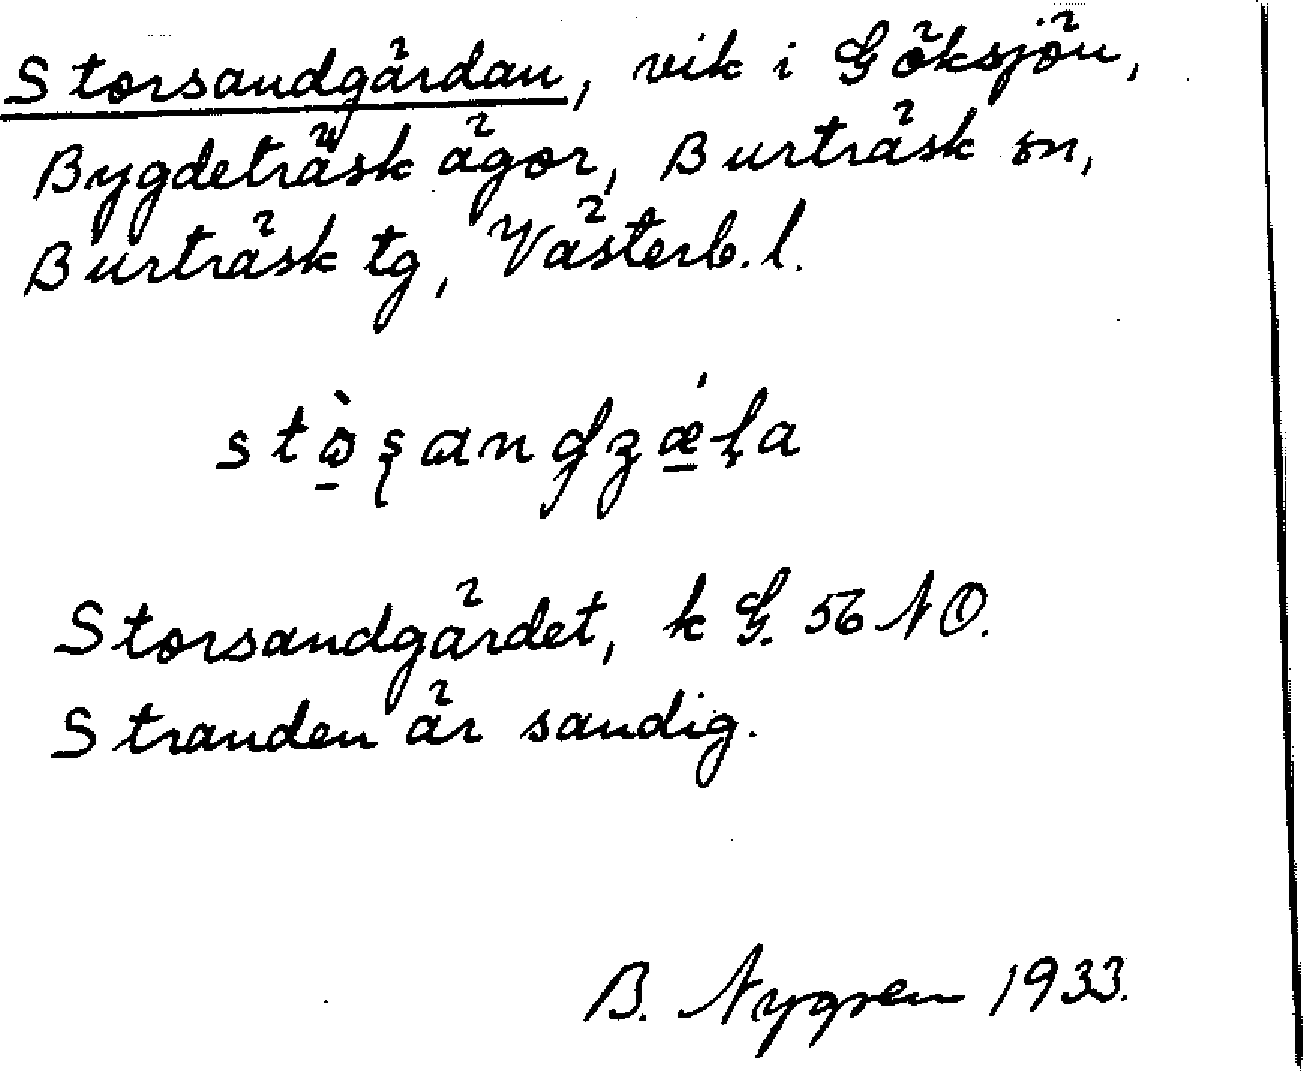 Storsandgärdan, vik i Göksjön,
Bygdeträsk ägor, Burträsk sn,
Burträsk tg, Västerb. l.
Storsandgärdet, k G. 56 NO.
Stranden är sandig.
B. Nygren 1933.